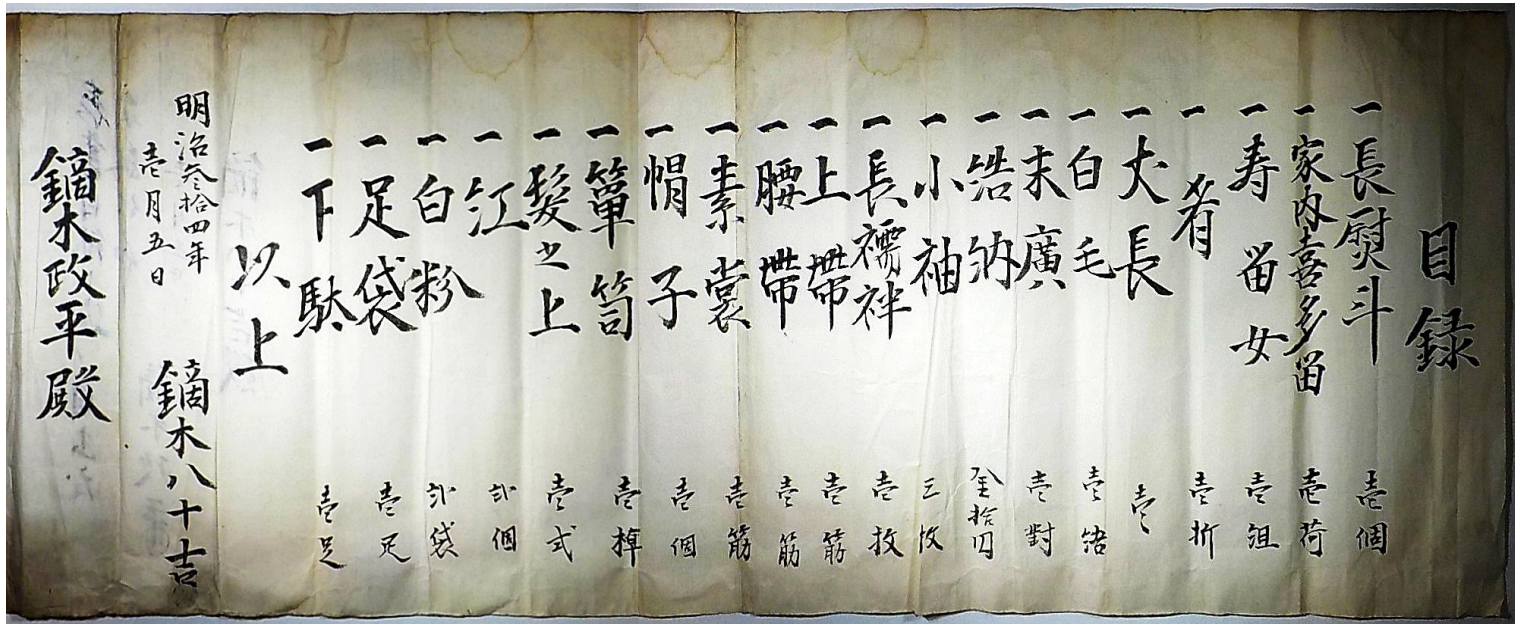 目録
一長熨斗 壱個
一家内喜多留 壱荷
一寿留女 壱組
一肴 壱折
一大長 壱
一白毛 壱結
一末廣 壱對
一結納 金拾円
一小袖 三枚
一長襦袢 壱枚
一上帯 壱筋
一腰帯 壱筋
一素裳 壱筋
一帽子 壱個
一箪笥 壱棹
一髪之上 壱式
一江 弐個
一白粉 弐袋
一足袋 壱足
一下駄 壱足
以上
明治参拾四年
壱月五日
鏑木八十吉
鏑木政平殿